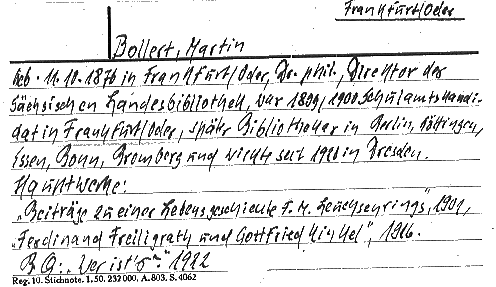 Frankfurt/Oder
Bollert, Martin
geb. 11.10.1876 in Frankfurt/Oder, Dr. phil., Direktor der
Sächsischen Landesbibliothek, war 1899/1900 Schulamtskandi-
dat in Frankfurt/Oder, später Bibliothekar in Berlin, Göttingen,
Essen, Bonn, Bromberg und wirkte seit 1920 in Dresden.
Hauptwerke:
„Beiträge zu einer Lebensgeschichte F. M. Leuchsenrings", 1901,
„Ferdinand Freiligrath und Gottfried Kinkel", 1916.
B Q: „Wer ist's?" 1922
Reg. 10. Stichnote. 1. 50. 232 000. A. 803. S. 4062